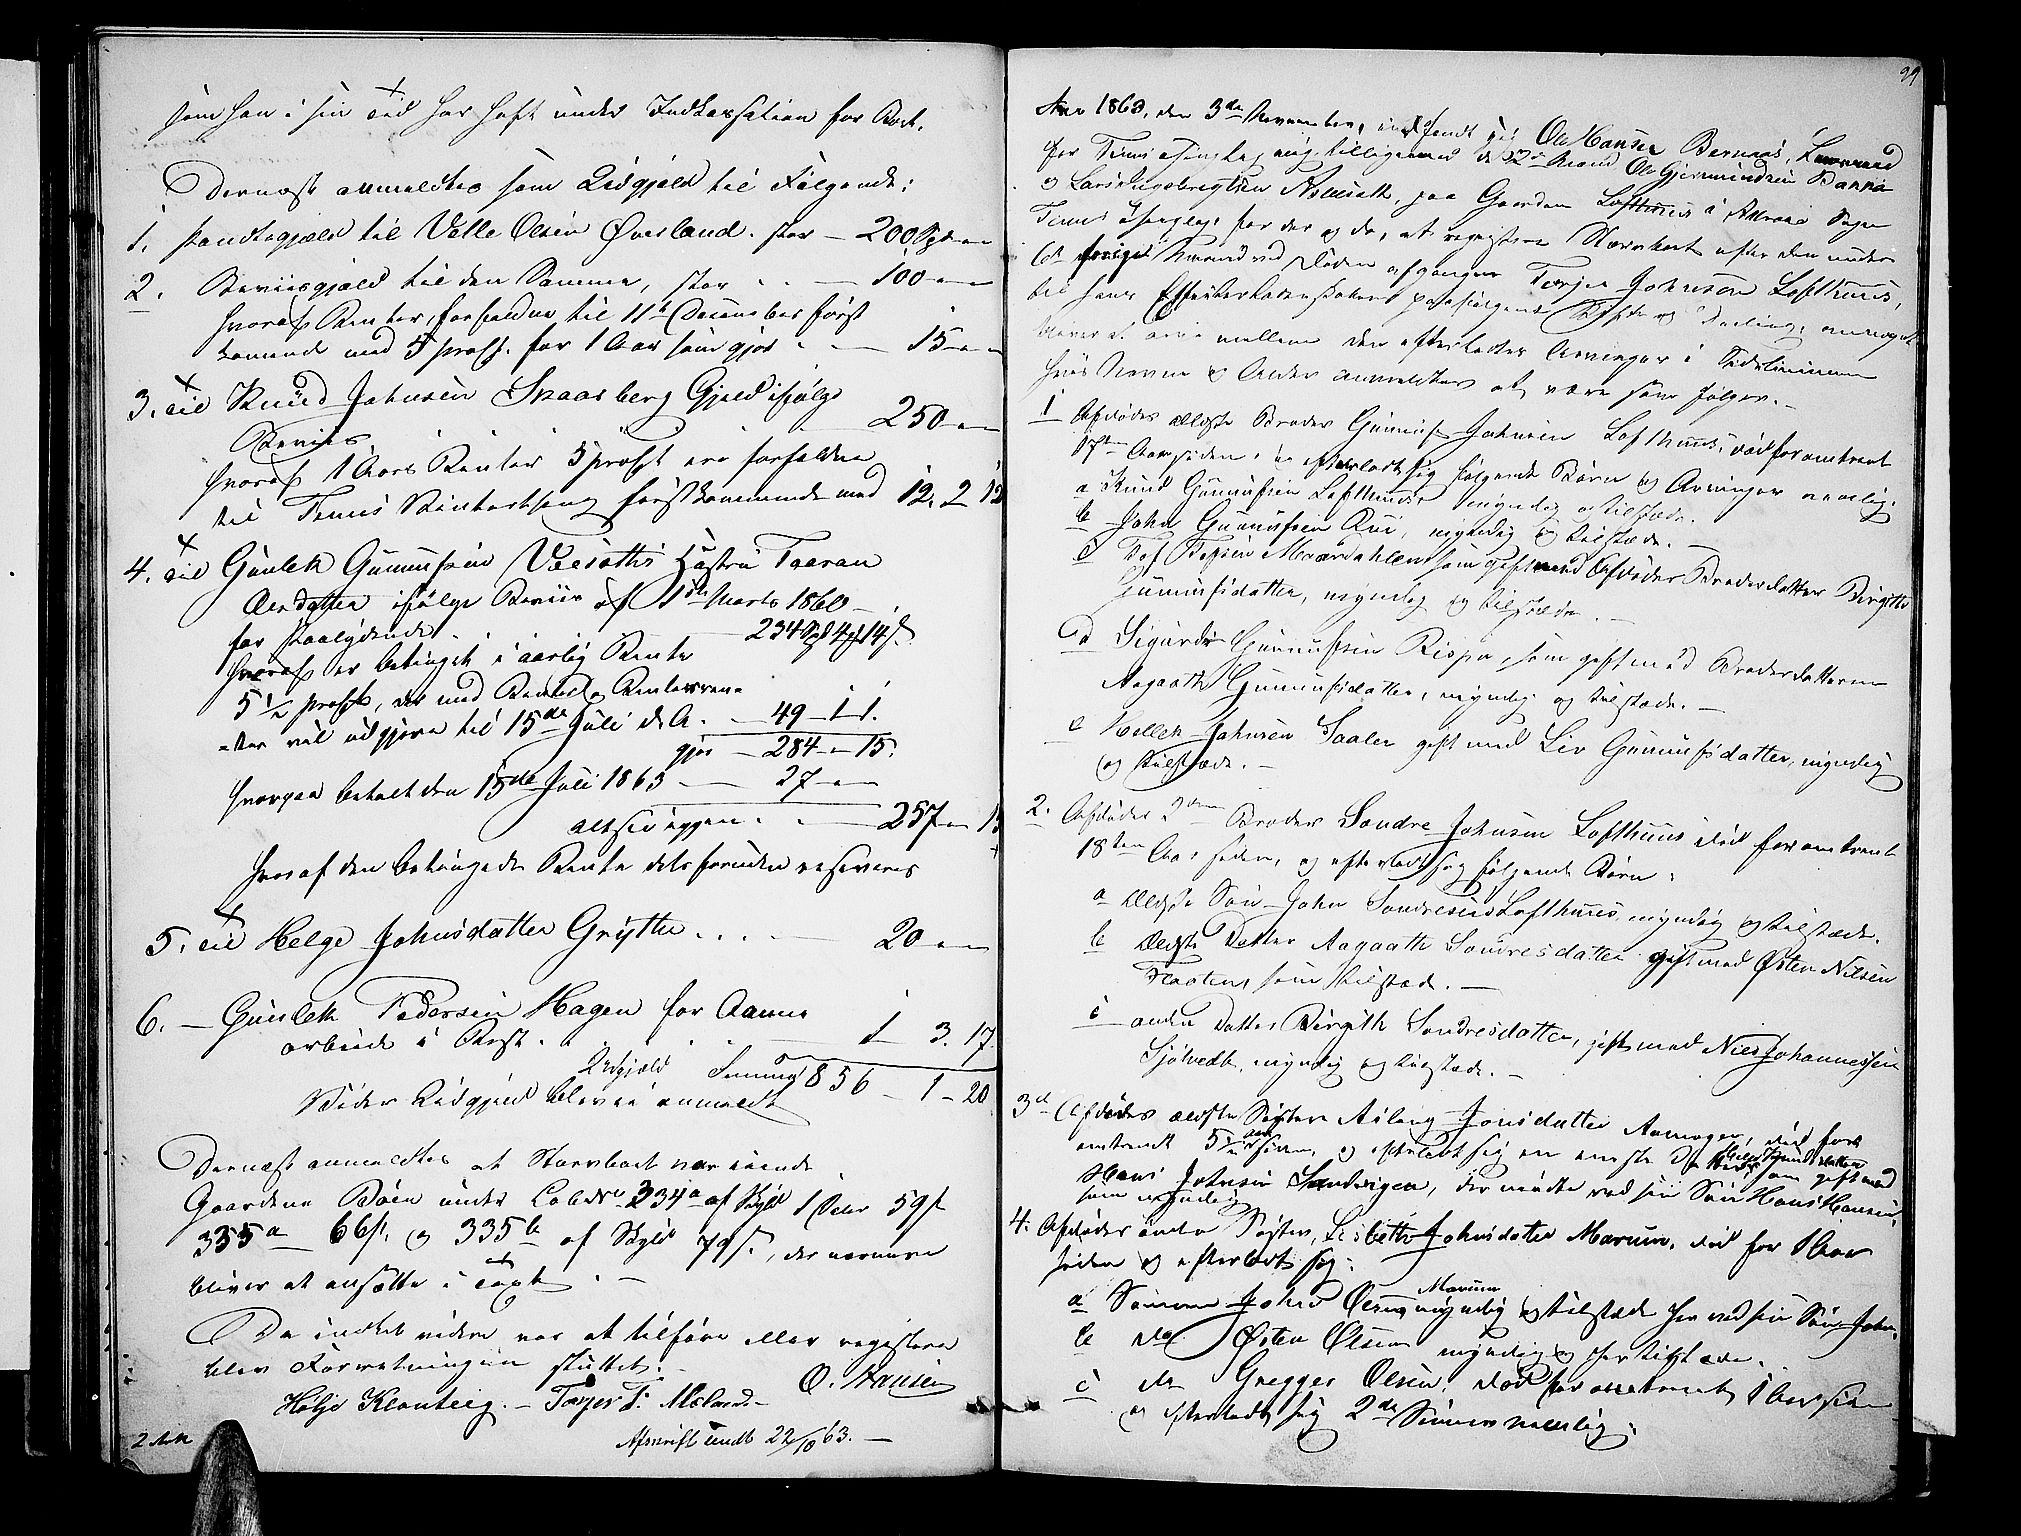 som han i sin Tid har haft under Inkassation for Boet.
Dernæst anmeldtes som Udgjæld til Følgende:
1. Pandtegjæld til Velle Olsen Øverland. stor — 200 Spd " "
2. Beviisgjæld til den Samme, stor — 100 " "
hvoraf Renter, forfaldne til 11te December først
komende med 5 pro Ct. for 1 Aar som gjør — 15 " "
3. Til Knud Johnsen Skaarsberg Gjæld ifølge
Beviis — 250 " "
hvoraf 1 Aars Renter 5 pro Ct ere forfaldne
til Tinns Vinterthing førstkommende med 12. 2 12
4. Til Gunlek Gunnufsen Hustru Taaran
ifølge Beviis af 1ste Marts 1860
for Paalydende 234 Spd 4 14 s.
hvoraf er betinget i aarlig Rente
5 1/2 pro Ct, der med Rente og Rentersren-
-ter vil udgjøre til 15de Juli d. A. — 49 – 1 1.
gjør — 284 " 15.
hvorpaa betalt den 15de Juli 1863 — 27 " "
altsaa igjen — 257 " 15
hvoraf den betingede Rente desforuden reserveres
5. Til Helge Johnsdatter Grythe — 20 " "
6. — Gunlek Pedersen Hagen for
arbeide i Rest — 1 3. 17
Udgjæld Summa 856 – 1 – 20
Vider Udgjæld blev ei anmeldt
Dernæst anmeldtes at Stervboet var eiende
Gaardene Bøen under Løbe No 334a af Skyld 1 Daler 59 s
335a 66 s. og 335b af Skyld 79 s., der nærmere
bliver at ansætte i Taxt.
Da intet videre var at tilføre eller registere
blev Forretningen sluttet.
O. Hansen
Holje Klonteig. — Torjer T. Mæland —
Afskrift sendt 22/10 63. —
99
Aar 1863, den 3de November, indfandt sig Ole Hansen Bernaas, Lensmand
for Tinns Thinglag mig tilligemed de 2de Mænd, Ole Gjermundsen
og Lars Ingebregtsen paa Gaarden Lofthuus i Sogn
Tinns Thinglag for der og da, at registere Stervboet efter den under
6te forrige Maaned ved Døden afgangne Torjer Johnsen Lofthuus,
til hans Efterladenskabers paafølgende Skifte og Deeling,
imellem den efterladte Arvinger i Sidelinien
hvis Navne og Alder anmeldtes at være som følger. —
1 Afdødes ældste Broder Gunnuf Johnsen Lofthuus, død for omtrent
17ten Aar siden, og efterladt sig følgende Børn og Arvinger nemlig:
a Knud Gunnufsen Lofthuus myndig og tilstæde.
b John Gunnufsen Rui, myndig og tilstæde. —
c som gift med Afdødes Broderdatter Birgitte
Gunnufsdatter, myndig og tilstæde. —
d Sigurd Gunnufsen Rispa, som gift med Broderdatteren
Aagaath Gunnufsdatter, myndig og tilstæde. —
e Hellek Johnsen Saaler gift med Liv Gunnufsdatter, myndig
og tilstæde. —
2. Afdødes 2den Broder Sondre Johnsen Lofthuus død for omtrent
18ten Aar siden, og efterladt sig følgende Børn:
a Ældste Søn John Sondresen Lofthuus, myndig og tilstæde.
b Ældste Datter Aagaath Sondresdatter gift med Østen Nilsen
Flaaten, som tilstæde. —
c anden Datter Birgith Sondresdatter, gift med Niels Johannessen
Sjøtvedt, myndig og tilstæde. —
3d Afdødes ældste Søster Aslaug Jonsdatter død for
omtrendt 5 Aar siden, og efterladt sig en eneste som gift med
Hans Johnsen Sandvigen, der mødte ved sin Søn Hans Hansen,
som myndig
4. Afdødes anden Søster, Lisbeth Johnsdatter Marum, død for 1 Aar
siden og efterladt sig:
a Sønnen John Olsen Marum, myndig og tilstæde her ved sin Søn John.
b do Østen Olsen myndig og her tilstæde.
c do Gregger Olsen, død for omtrent 1 Aar siden
og efterladt sig 2de Sønner nemlig: